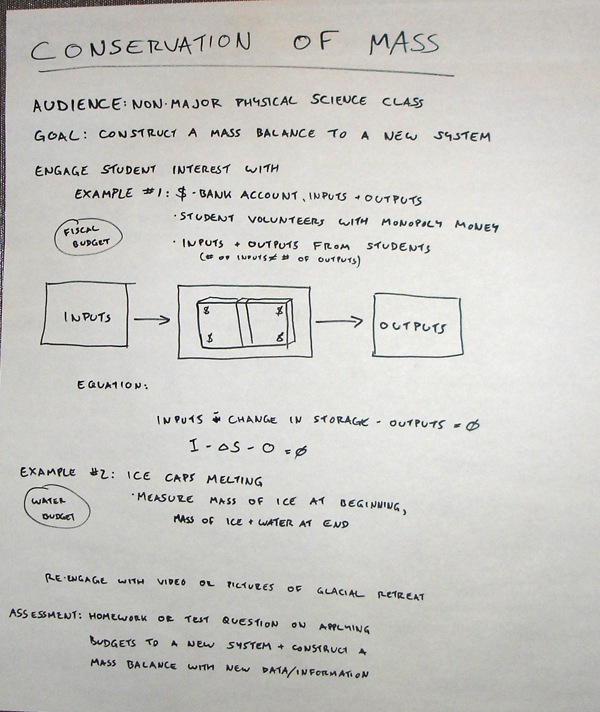 CONSERVATION OF MASS
AUDIENCE: NON-MAJOR PHYSICAL SCIENCE CLASS
GOAL: CONSTRUCT A MASS BALANCE TO A NEW SYSTEM
ENGAGE STUDENT INTEREST WITH
EXAMPLE #1: $ - BANK ACCOUNT, INPUTS + OUTPUTS
· STUDENT VOLUNTEERS WITH MONOPOLY MONEY
FISCAL
BUDGET
· INPUTS + OUTPUTS FROM STUDENTS
(# OF INPUTS ≠ # OF OUTPUTS)
INPUTS
$ $
$ $
OUTPUTS
EQUATION:
INPUTS - CHANGE IN STORAGE - OUTPUTS = Ø
I - ΔS - O = Ø
EXAMPLE #2: ICE CAPS MELTING
WATER
BUDGET
· MEASURE MASS OF ICE AT BEGINNING,
MASS OF ICE + WATER AT END
RE-ENGAGE WITH VIDEO OR PICTURES OF GLACIAL RETREAT
ASSESSMENT: HOMEWORK OR TEST QUESTION ON APPLYING
BUDGETS TO A NEW SYSTEM + CONSTRUCT A
MASS BALANCE WITH NEW DATA/INFORMATION